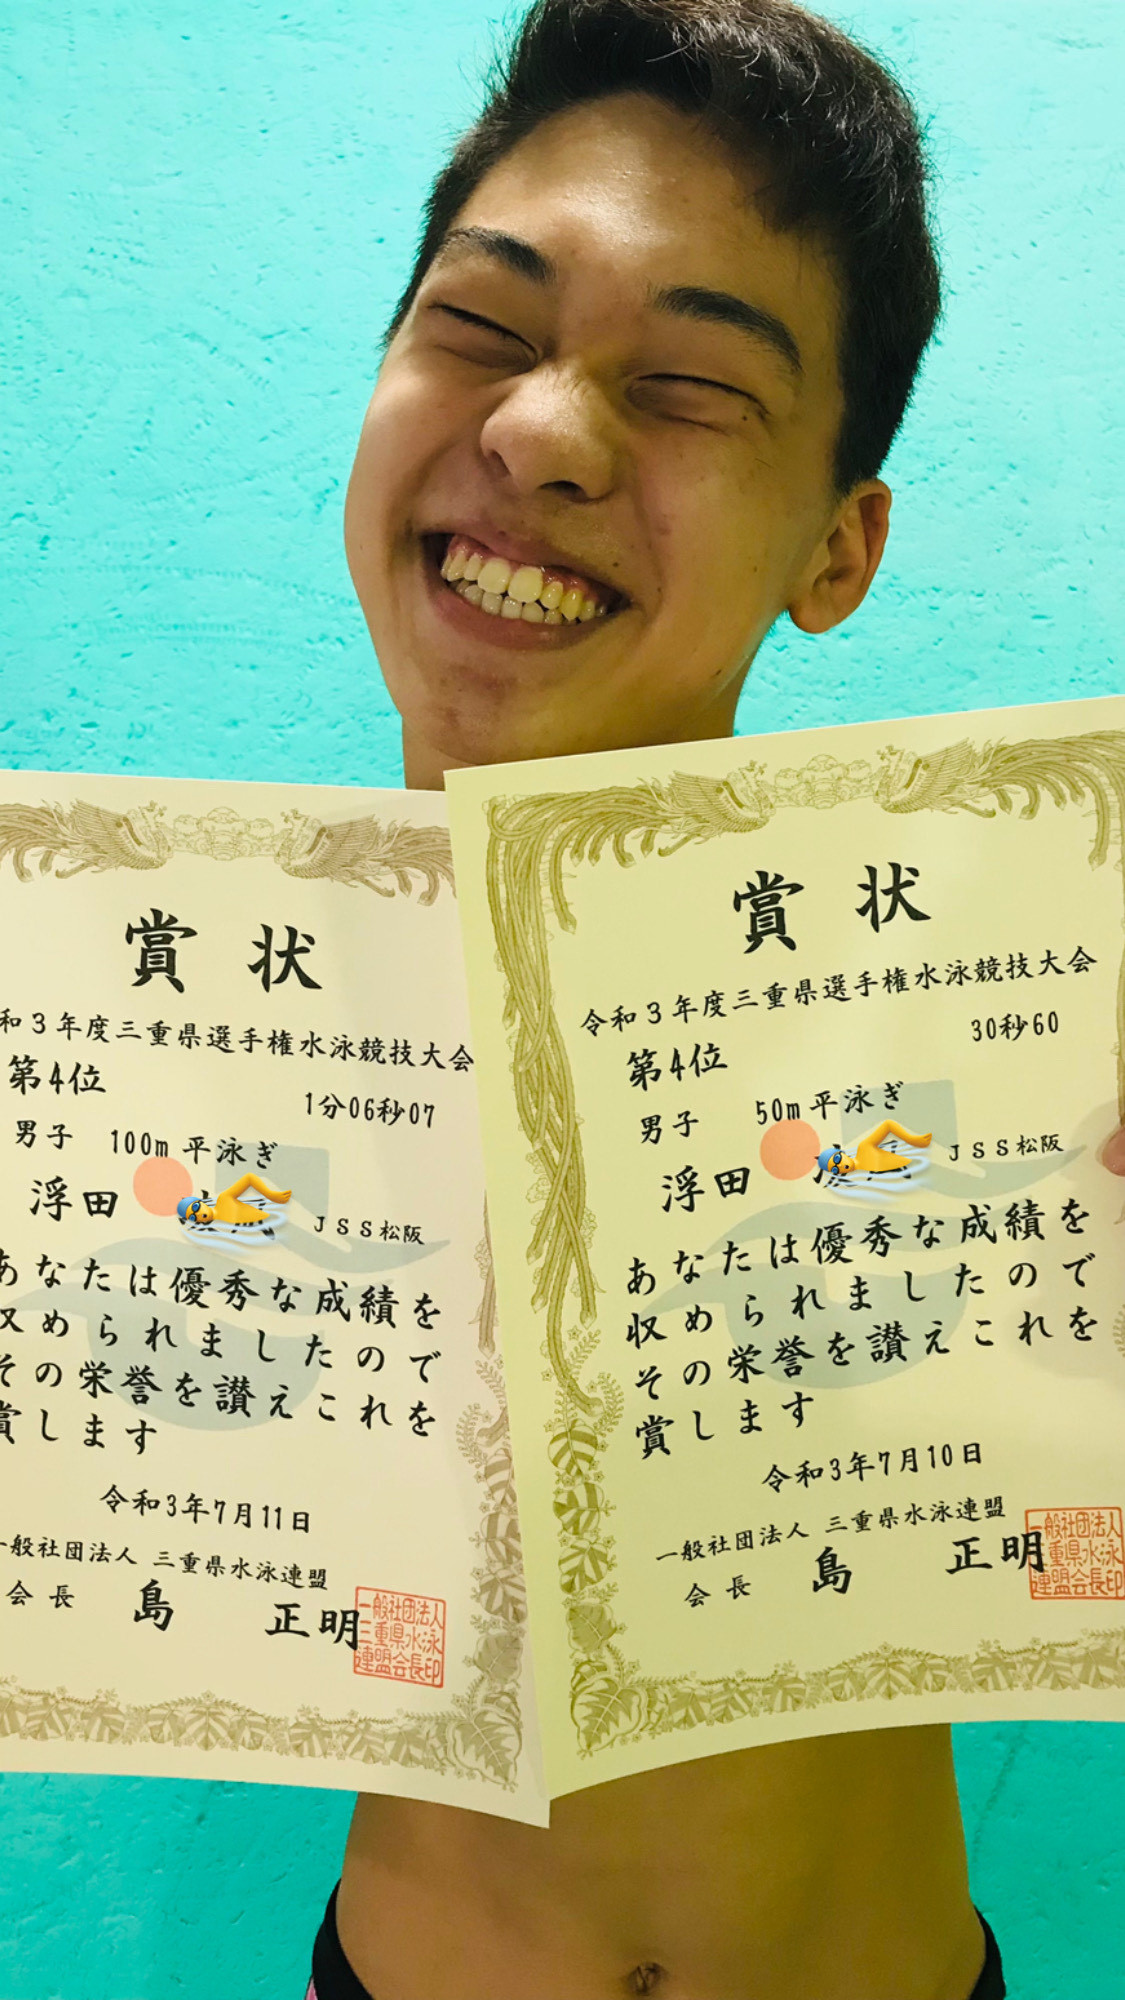 賞状
和3年度三重県選手権水泳競技大会
第4位
1分06秒07
男子 100m 平泳ぎ
浮田
JSS松阪
あなたは優秀な成績を
収められましたので
その栄誉を讃えこれを
賞します
令和3年7月11日
一般社団法人 三重県水泳連盟
会長 島 正明
一般社団法人
三重県水泳
連盟会長印
賞状
令和3年度三重県選手権水泳競技大会
第4位
30秒60
男子 50m 平泳ぎ
浮田
JSS松阪
あなたは優秀な成績を
収められましたので
その栄誉を讃えこれを
賞します
令和3年7月10日
一般社団法人 三重県水泳連盟
会長 島 正明
一般社団法人
三重県水泳
連盟会長印